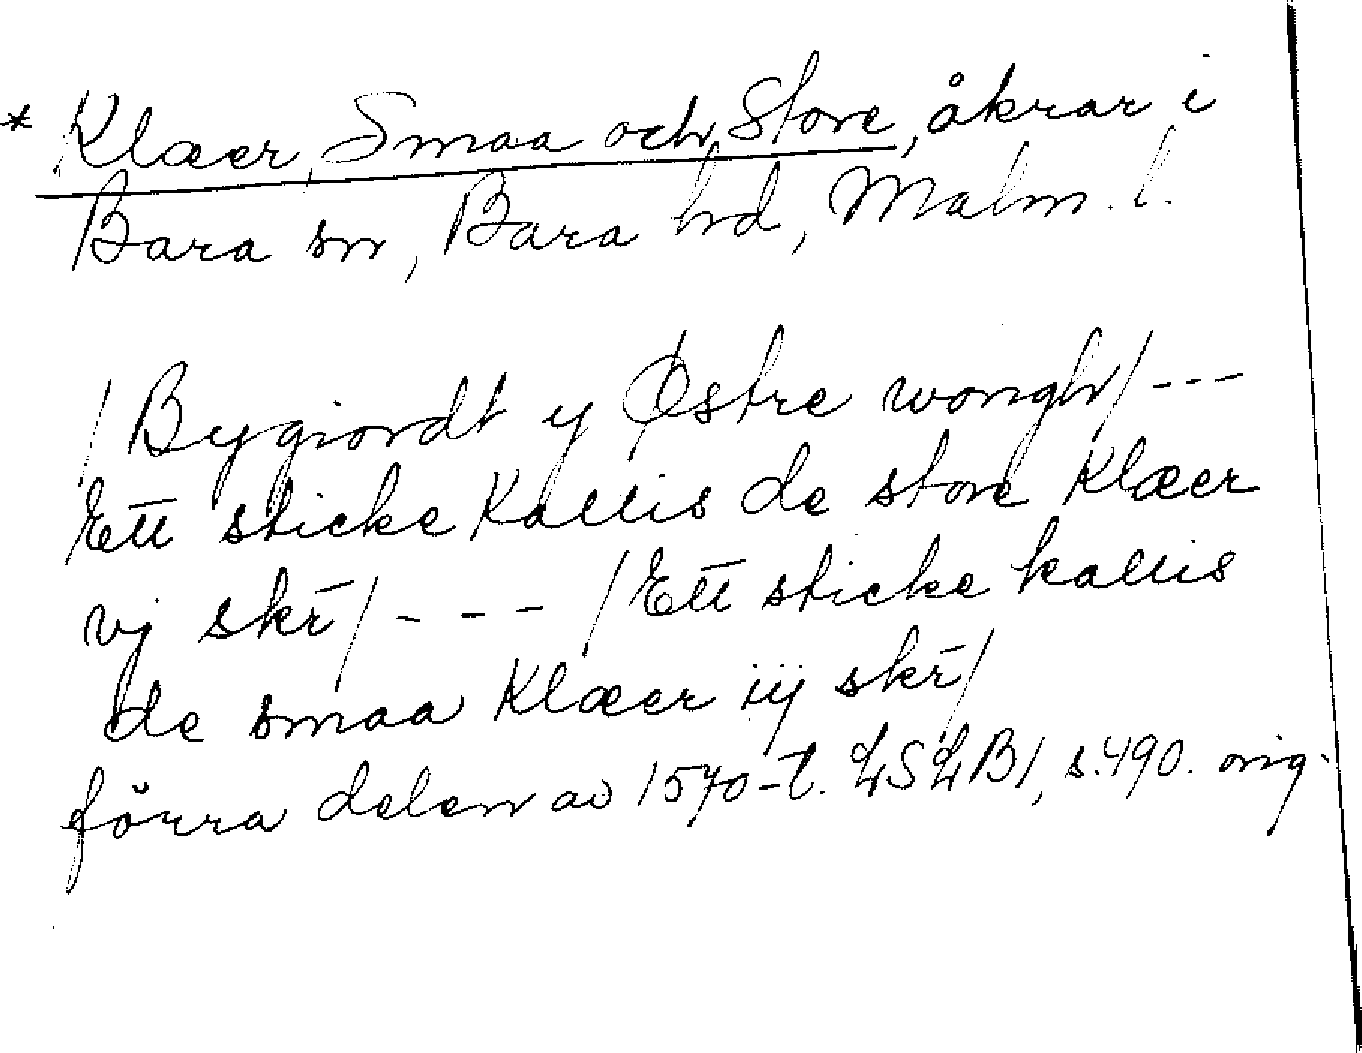 * Klæer, Smaa och Store, åkrar i
Bara sn, Bara hd, Malm. l.
/ Bygiordt y Østre wongh / ---
Ett sticke Kallis de store Klæer
vj skr̄ / - - - / Ett sticke kallis
de smaa Klæer iij skr̄ /
förra delen av 1570-t. LSLB1, s. 490. orig.